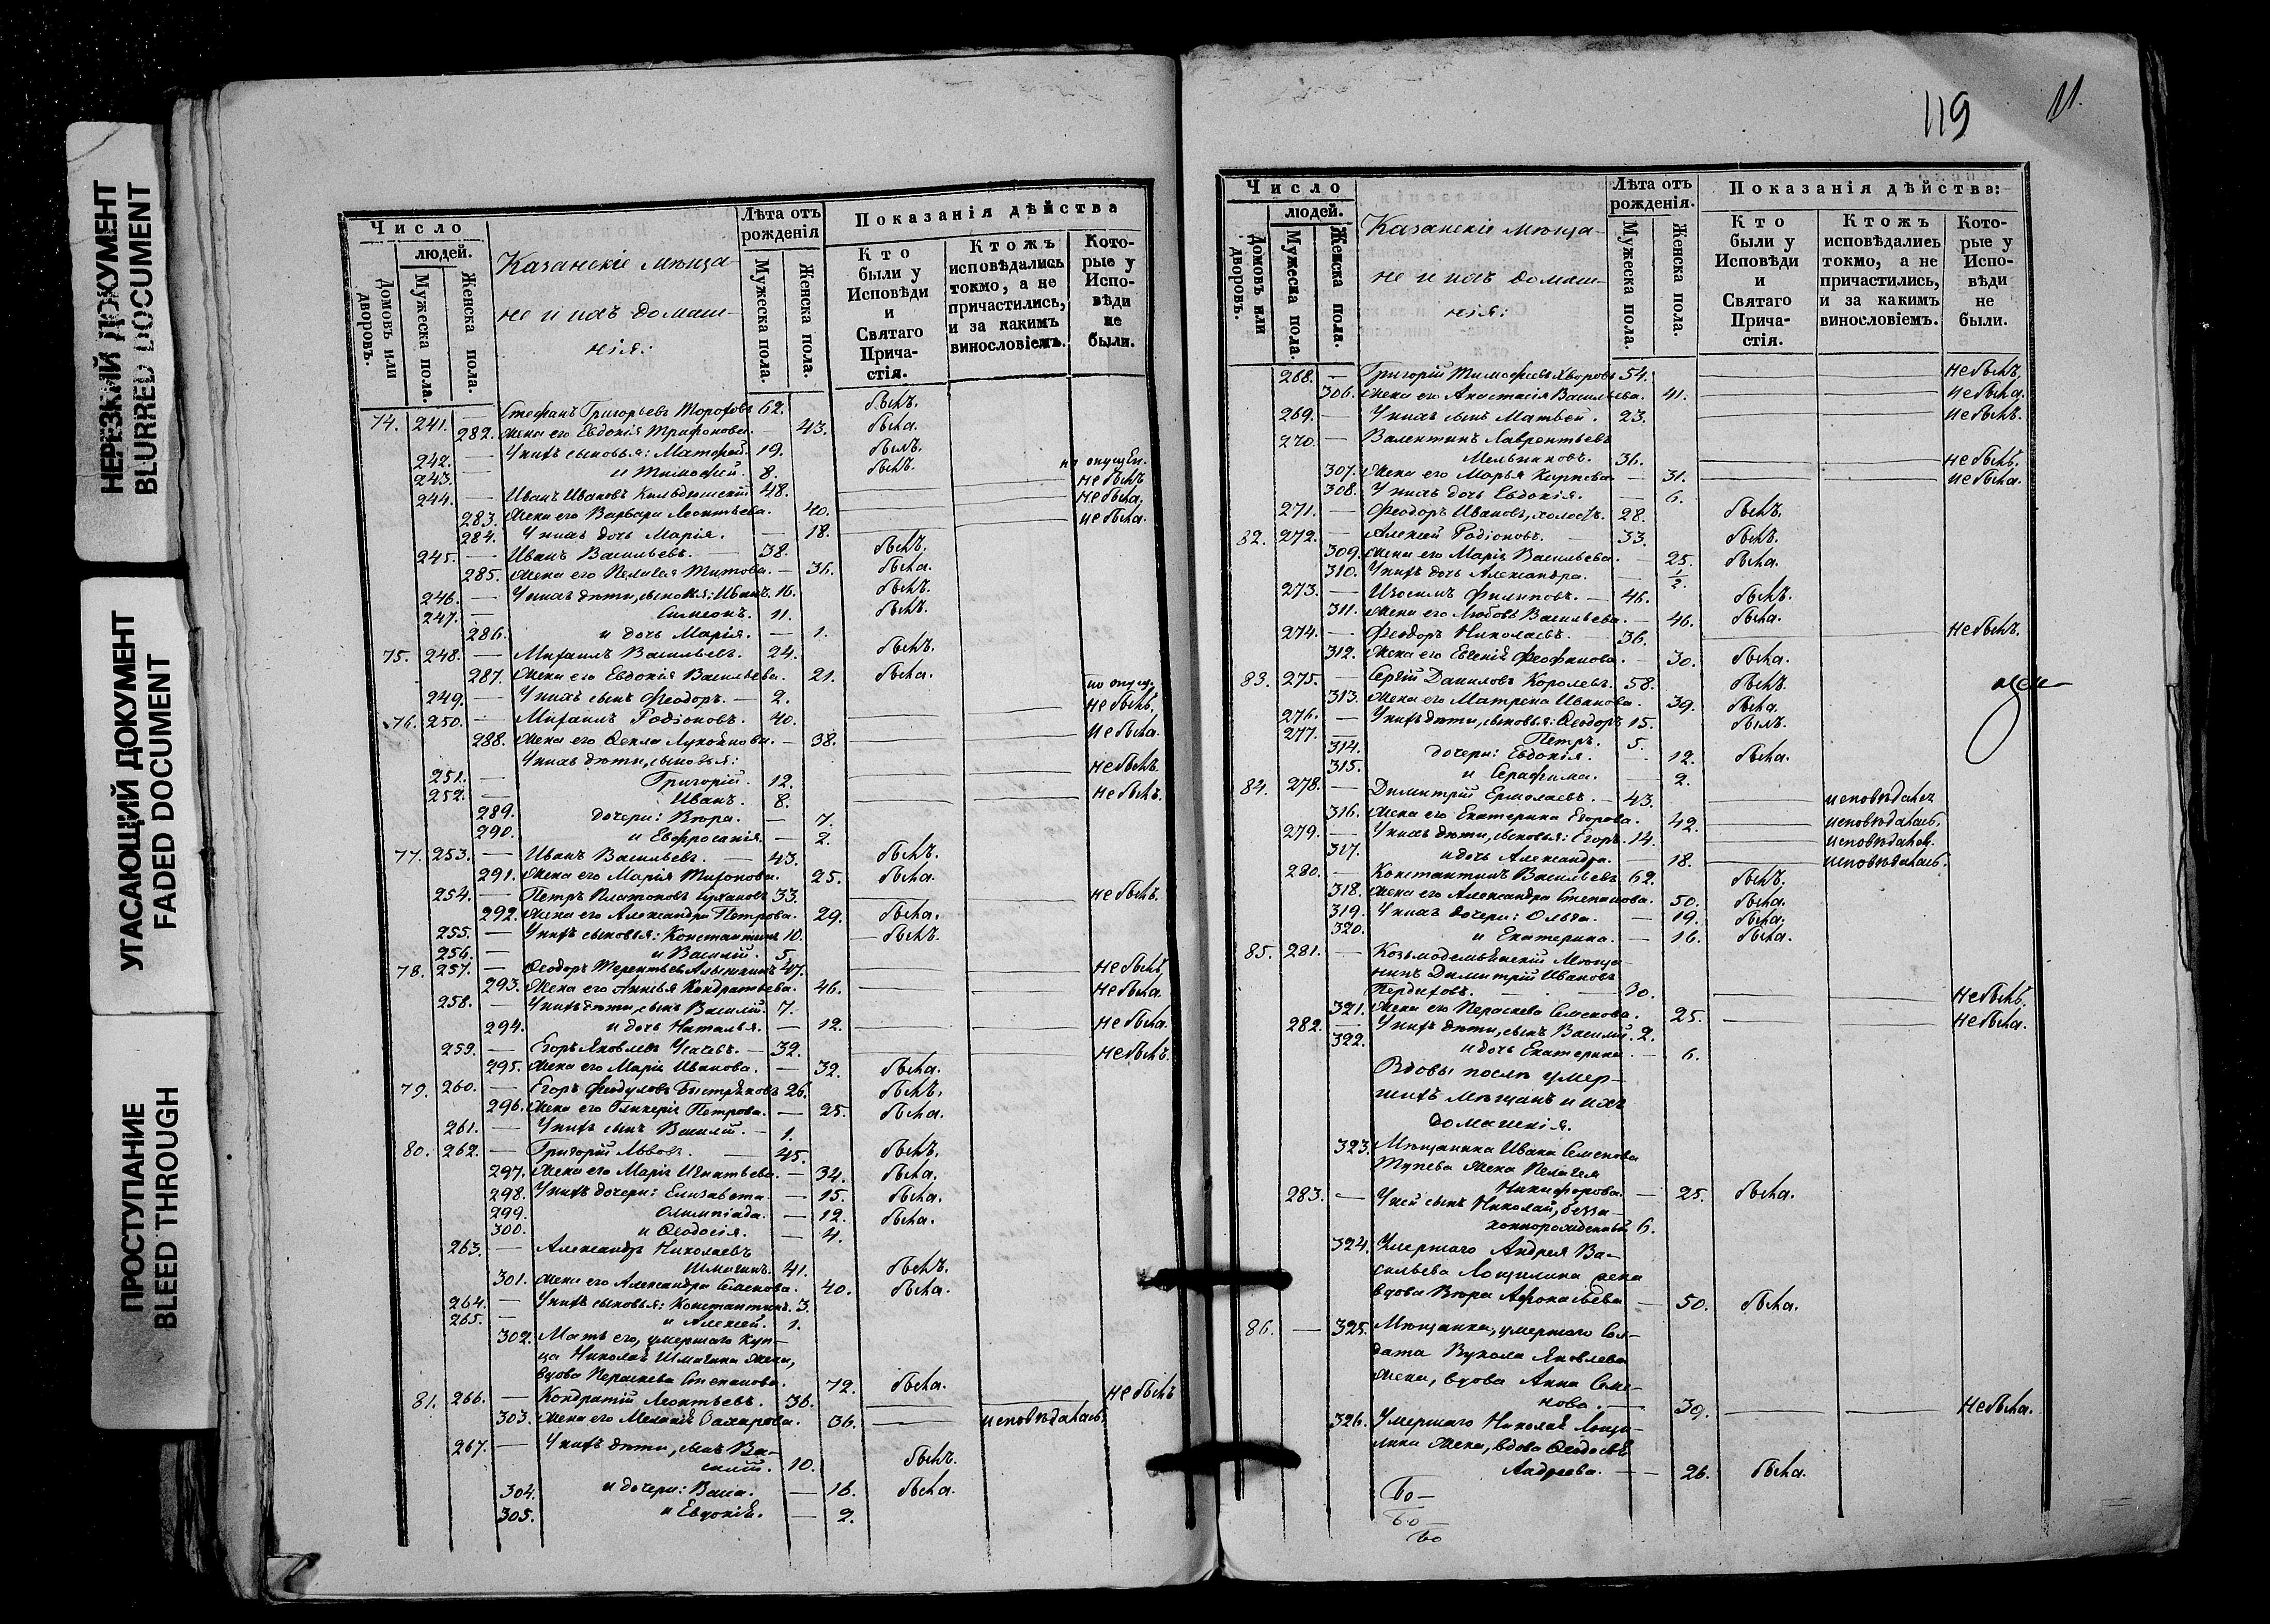 НЕРЕЗКИЙ ДОКУМЕНТ
BLURRED DOCUMENT
УГАСАЮЩИЙ ДОКУМЕНТ
FADED DOCUMENT
ПРОСТУПАНИЕ
BLEED THROUGH
Число
людей.
Домовъ или дворовъ.
Мужеска пола.
Женска пола.
Казанскіе мѣща-
не и ихъ домаш-
нія:
Лѣта отъ рожденія
Мужеска пола.
Женска пола.
Показанія дѣйства
Кто были у Исповѣди и Святаго Прича-стія.
Ктожъ исповѣдались токмо, а не причастились, и за какимъ винословіемъ.
Кото-рые у Испо-вѣди не были.
74. 241. — Стефанъ Григорьевъ 62. былъ.
282. Жена его Евдокія Трифонова. — 43. была.
242. — У нихъ сыновья: Матфей. 19. былъ.
243. — и Тимофей. 8. былъ.
244. — Иванъ Ивановъ 48. — не былъ
283. Жена его Варвара Леонтьева. 40. — не была.
284. У нихъ дочь Марія. — 18. — не была.
245. — Иванъ Васильевъ. — 38. былъ.
285. Жена его Пелагея Титова. — 36. была.
246. — У нихъ дѣти, сыновья: Иванъ. 16. былъ.
247. — Симеонъ. 11. былъ.
286. и дочь Марія. — 1.
75. 248. — Михаилъ Васильевъ. 24. былъ.
287. Жена его Евдокія Васильева. 21. была.
249. — У нихъ сынъ Феодоръ. — 2.
76. 250. — Михаилъ Родіоновъ. 40. — не былъ.
288. Жена его Ѳекла — 38. — не была.
У нихъ дѣти, сыновья:
251. — Григорій. 12. — не былъ.
252. — Иванъ. 8. — не былъ.
289. дочери: Вѣра. — 7.
290. и Евфросинія. — 2.
77. 253. — Иванъ Васильевъ. — 43. былъ.
291. Жена его Марія Тихонова. 25. была.
254. — Петръ Платоновъ 33. не былъ.
292. Жена его Александра Петрова. 29. была.
255. — У нихъ сыновья: Константинъ 10. — былъ.
256. — и Василій. 5.
78. 257. — Ѳеодоръ Терентьевъ 47. — не былъ.
293. Жена его Анисья Кондратьева. 46. — не была.
258. — У нихъ дѣти, сынъ Василій. 7.
294. и дочь Наталья. — 12. — не была.
259. — Егоръ Яковлевъ Усачевъ. — 32. — не былъ.
295. Жена его Марія Иванова. — 32. была.
79. 260. — Егоръ Феодуловъ Быстряковъ 26. былъ.
296. Жена его Гликерія Петрова. — 25. была.
261. — У нихъ сынъ Василій. — 1.
80. 262. — Григорій Львовъ. — 45. былъ.
297. Жена его Марія Игнатьева. — 34. была.
298. У нихъ дочери: Елизавета. — 15. была.
299. Олимпіада. — 12. была.
300. и Ѳеодосія. — 4.
263. — Александръ Николаевъ
Шмагинъ. 41. былъ.
301. Жена его Александра Семенова. 40. была.
264. — У нихъ сыновья: Константинъ. 3.
265. — и Алексѣй. 1.
302. Мать его, умершаго куп-
ца Николая Шмагина жена,
вдова Параскева Степанова. 72. была.
81. 266. — Кондратій Леонтьевъ. 36. — не былъ
303. Жена его Меланія 36. — исповѣдалась.
267. — У нихъ дѣти, сынъ Ва-
силій. 10. былъ.
304. и дочери: — 16. была.
305. и Евдокія. — 2.
119
11.
Число
людей.
Домовъ или дворовъ.
Мужеска пола.
Женска пола.
Казанскіе мѣща-
не и ихъ домаш-
нія:
Лѣта отъ рожденія.
Мужеска пола.
Женска пола.
Показанія дѣйства:
Кто были у Исповѣди и Святаго Прича-стія.
Ктожъ исповѣдались токмо, а не причастились, и за какимъ винословіемъ.
Кото-рые у Испо-вѣди не были.
268. — Григорій Тимофеевъ 54. — не былъ.
306. Жена его Анастасія Васильева. 41. — не была.
269. — У нихъ сынъ Матвей. 23. — не былъ.
270. — Валентинъ Лаврентьевъ
Мельниковъ. 36. — не былъ.
307. Жена его Марья Карпова. — 31. — не была.
308. У нихъ дочь Евдокія. — 6.
271. — Феодоръ Ивановъ, холостъ. 28. былъ.
82. 272. — Алексѣй Родіоновъ. — 33. былъ.
309. Жена его Марія Васильева. — 25. была.
310. У нихъ дочь Александра. — 1/2.
273. — Филиповъ. — 46. былъ.
311. Жена его Любовь Васильева. — 46. была.
274. — Феодоръ Николаевъ. — 36. — не былъ.
312. Жена его Евгенія Феофанова. — 30. была.
83. 275. — Сергій Даниловъ Королевъ. 58. былъ.
313. Жена его Матрена Иванова. 39. была.
276. — У нихъ дѣти, сыновья: Ѳеодоръ 15. былъ.
277. — Петръ. 5.
314. дочери: Евдокія. — 12. была.
315. и Серафима. — 2.
84. 278. — Димитрій Ермолаевъ. — 43. — исповѣдался
316. Жена его Екатерина Егорова. 42. — исповѣдалась.
279. — У нихъ дѣти, сыновья: Егоръ. 14. — исповѣдался.
317. и дочь Александра. — 18. — исповѣдалась.
280. — Константинъ Васильевъ 62. былъ.
318. Жена его Александра Степанова. 50. была.
319. У нихъ дочери: Ольга. — 19. была.
320. и Екатерина. — 16. была.
85. 281. — Козьмодемьянскій мѣща-
нинъ Димитрій Ивановъ
30. — не былъ.
321. Жена его Параскева Семенова. 25. — не была.
282. — У нихъ дѣти, сынъ Василій. 2.
322. и дочь Екатерина. — 6.
Вдовы послѣ умер-
шихъ мѣщанъ и ихъ
домашнія.
323. Мѣщанина Ивана Семенова
жена Пелагея
Никифорова. — 25. была.
283. — У ней сынъ Николай, безза-
коннорожденный 6.
324. Умершаго Андрея Ва-
сильева Лощилина жена
вдова Вѣра — 50. была.
86. — 325. Мѣщанка, умершаго сол-
дата Вукола Яковлева
жена, вдова Анна Семе-
нова. — 39. — не была.
326. Умершаго Николая Лощи-
лина жена, вдова Ѳеодосія
Андреева. — 26. была.